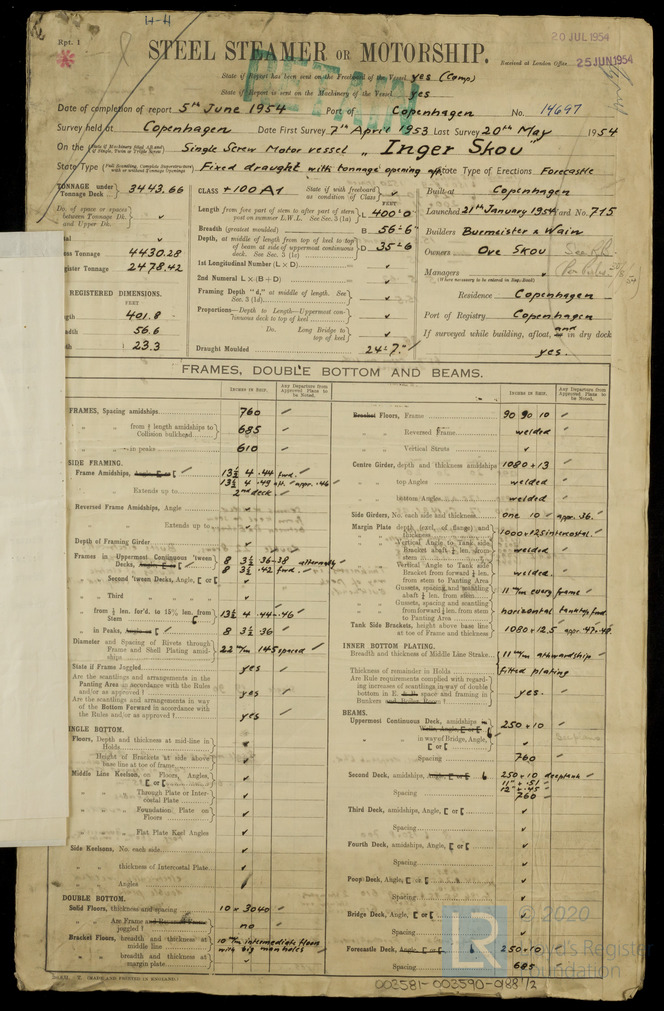 H-H
Rpt. 1
20 JUL 1954
STEEL STEAMER OR MOTORSHIP.
Received at London Office 25 JUN 1954
State if Report has been sent on the Freeboard of the Vessel yes (Comp)
State if Report is sent on the Machinery of the Vessel yes
Date of completion of report 5th June 1954 Port of Copenhagen No. 14697
Survey held at Copenhagen Date First Survey 7th April 1953 Last Survey 20th May 1954
On the Single Screw Motor vessel „ Inger Skou"
State Type Fixed draught with tonnage opening aft State Type of Erections Forecastle
TONNAGE under Tonnage Deck 3443.66
CLASS +100A1 State if with freeboard as condition of Class
Built at Copenhagen
Length from fore part of stem to after part of stern post on summer L.W.L. See Sec. 3 (1a) L 400'0"
Launched 21th January 1954 Yard No. 715
Breadth (greatest moulded) B 56'-6"
Builders Burmeister & Wain
Depth, at middle of length from top of keel to top of beam at side of uppermost continuous deck. See Sec. 3 (1c) D 35'-6
Owners Ove Skou
4430.28
1st Longitudinal Number (L × D)
Managers
2478.42
2nd Numeral L × (B + D)
REGISTERED DIMENSIONS.
FEET
Framing Depth "d," at middle of length. See Sec. 3 (1d)
Residence Copenhagen
401.8
Proportions—Depth to Length—Uppermost continuous deck to top of keel
Port of Registry Copenhagen
56.6
Do. Long Bridge to top of keel
If surveyed while building, afloat, and in dry dock
23.3
Draught Moulded 24'-7"
yes.
FRAMES, DOUBLE BOTTOM AND BEAMS.
INCHES IN SHIP. Any Departure from Approved Plans to be Noted.
INCHES IN SHIP. Any Departure from Approved Plans to be Noted.
FRAMES, Spacing amidships 760
" " from ⅕ length amidships to Collision bulkhead 685
" " in peaks 610
SIDE FRAMING.
Frame Amidships, Angle, [ or [ 13½ 4 .44 fwd.
13½ 4 .49 aft. appr. .46
Extends up to 2nd deck
Reversed Frame Amidships, Angle
" " Extends up to
Depth of Framing Girder
Frames in Uppermost Continuous 'tween Decks, Angle, [ or [ 8 3½ 36-38 alternatly
8 3½ .42 fwd.
" Second 'tween Decks, Angle, [ or [
" Third " "
" from ⅕ len. for'd. to 15% len. from Stem 13½ 4 .44-.46
" in Peaks, Angle or [ 8 3½ 36
Diameter and Spacing of Rivets through Frame and Shell Plating amidships 22 m/m 145 spaced
State if Frame Joggled yes
Are the scantlings and arrangements in the Panting Area in accordance with the Rules and/or as approved? yes
Are the scantlings and arrangements in way of the Bottom Forward in accordance with the Rules and/or as approved? yes
SINGLE BOTTOM.
Floors, Depth and thickness at mid-line in Holds
" Height of Brackets at side above base line at toe of frame
Middle Line Keelson, on Floors, Angles, [ or [
" " Through Plate or Intercostal Plate
" " Foundation Plate on Floors
" " Flat Plate Keel Angles
Side Keelsons, No. each side
" " thickness of Intercostal Plate
" " Angles
DOUBLE BOTTOM.
Solid Floors, thickness and spacing 10 × 3040
" " Are Frame and Reversed Frame joggled? no
Bracket Floors, breadth and thickness at middle line 10 m/m intermediate floor with big man holes
" " breadth and thickness at margin plate
Bracket Floors, Frame 90 90 10
" " Reversed Frame welded
" " Vertical Struts
Centre Girder, depth and thickness amidships 1080 × 13
" " top Angles welded
" " bottom Angles welded
Side Girders, No. each side and thickness one 10 appr. 36.
Margin Plate depth (excl. of flange) and thickness 1000 × 12.5 intercostal.
" " Vertical Angle to Tank side Bracket abaft ¼ len. from stem welded
" " Vertical Angle to Tank side Bracket from forward ¼ len. from stem to Panting Area welded.
" " Gussets, spacing and scantling abaft ¼ len. from stem 11 m/m every frame
" " Gussets, spacing and scantling from forward ¼ len. from stem to Panting Area horizontal tanktop fwd
Tank Side Brackets, height above base line at toe of Frame and thickness 1080 × 12.5 appr .47-.49.
INNER BOTTOM PLATING.
Breadth and thickness of Middle Line Strake 11 m/m athwardship
Thickness of remainder in Holds fitted plating
Are Rule requirements complied with regarding increases of scantlings in way of double bottom in E. space and framing in Bunkers yes.
BEAMS.
Uppermost Continuous Deck, amidships 250 × 10
" " in way of Bridge, Angle, [ or [
Spacing 760
Second Deck, amidships, Angle, [ or [ 250 × 10 deeptank
11" × .51
12" × .45
Spacing 760
Third Deck, amidships, Angle, [ or [
Spacing
Fourth Deck, amidships, Angle, [ or [
Spacing
Poop Deck, Angle, [ or [
Spacing
Bridge Deck, Angle, [ or [
Spacing
Forecastle Deck, Angle, [ or [ 250 × 10
Spacing 685
(MADE AND PRINTED IN ENGLAND.)
LR
© 2020
Lloyd's Register
Foundation
003581-003590-0188 1/2